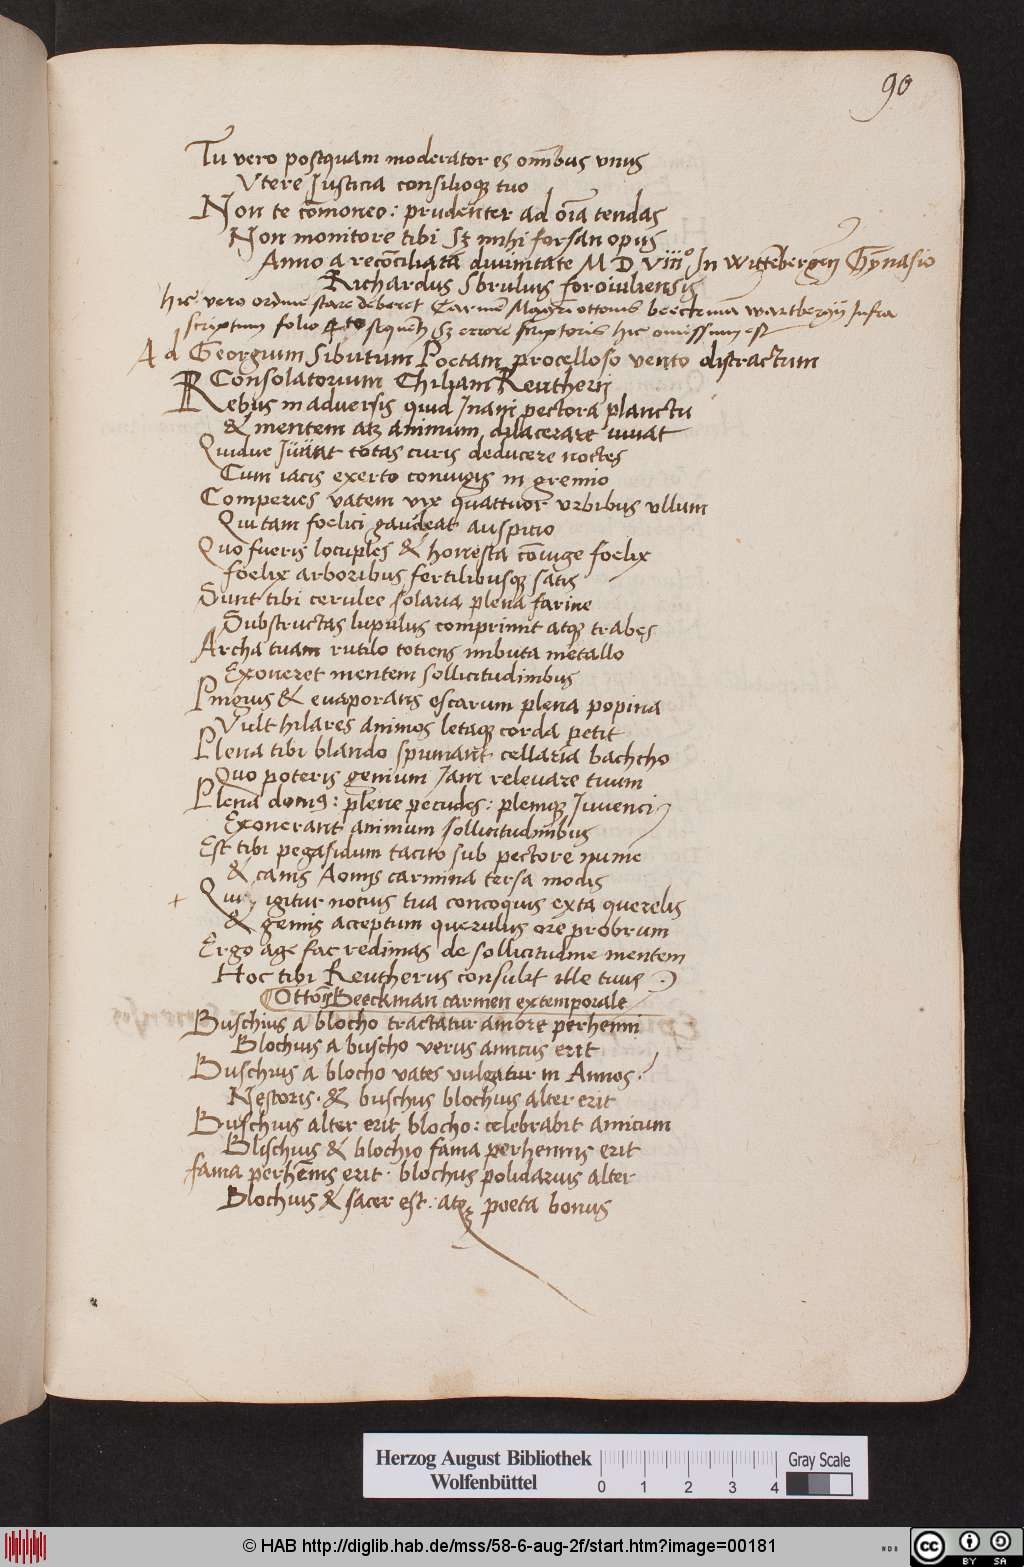 90
Tu vero postquam moderator es omībus vnus
Vtere Justicia consilioqꝫ tuo
Non te cōmoneo: prudenter ad oīa tendas
Non monitore tibi sꝫ mihi forsan opus
Anno a recōciliata diuinitate M D viii° In Wittēbergen̄ Gȳnasio
Richardus Sbrulius foroiuliensis
hic vero ordine stare deberet Carmē Magri ottonis beeckmā wartbergij Infra
scriptum folio 4to sequēti sꝫ errore scriptoris hic omissum est
Ad Georgium Sibutum Poetam procelloso vento distractum
Consolatorium Chiliani Reutheri
Rebus in aduersis quid Inani pectora planctu
& mentem atqꝫ animum dilacerare iuuat
Quidue Juuat totas curis deducere noctes
Cum iacis exerto coniugis in gremio
Comperies vatem vix quattuor vrbibus vllum
Qui tam foelici gaudeat auspicio
Quo fueris locuples & honesta cōiuge foelix
foelix arboribus fertilibusqꝫ satis
Sunt tibi cerulee solaria plena farine
Substructas lupulus comprimit atqꝫ trabes
Archa tuam rutilo totiens imbuta metallo
Exoneret mentem sollicitudinibus
Pingius & euaporatis escarum plena popina
Vult hilares animos letaqꝫ corda petit
Plena tibi blando spumant cellaria bachcho
Quo poteris genium Jam releuare tuum
Plena domus: plene pecudes: pleniqꝫ Juuenci
Exonerant animum sollicitudinibus
Est tibi pegasidum tacito sub pectore nume
& canis Aonijs carmina tersa modis
+ Quid igitur notius tua concoquis exta querelis
& gemis acceptum querulus ore probrum
Ergo age fac redimas de sollicitudine mentem
Hoc tibi Reutherus consulit ille tuus
Ottonis Beeckman carmen extemporale
Buschius a blocho tractatur amore perhenni
Blochius a buscho verus amicus erit
Buschius a blocho vates vulgatur in Annos
Nestoris. & buschus blochius alter erit
Buschius alter erit blocho: celebrabit amicum
Buschius & blochio fama perhennis erit
fama perhēnis erit. blochus polidarius alter
Blochius & sacer est. atqꝫ poeta bonus
Herzog August Bibliothek
Wolfenbüttel
0 1 2 3 4
Gray Scale
© HAB http://diglib.hab.de/mss/58-6-aug-2f/start.htm?image=00181
cc BY SA